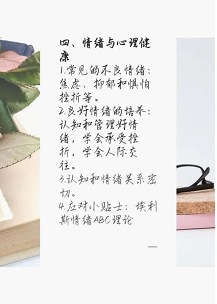 四、情绪与心理健
康
1.常见的不良情绪:
焦虑、抑郁和惧怕
挫折等。
2.良好情绪的培养:
认知和管理好情
绪，学会承受挫
折，学会人际交
往。
3.认知和情绪关系密
切。
4.应对小贴士：埃利
斯情绪ABC理论